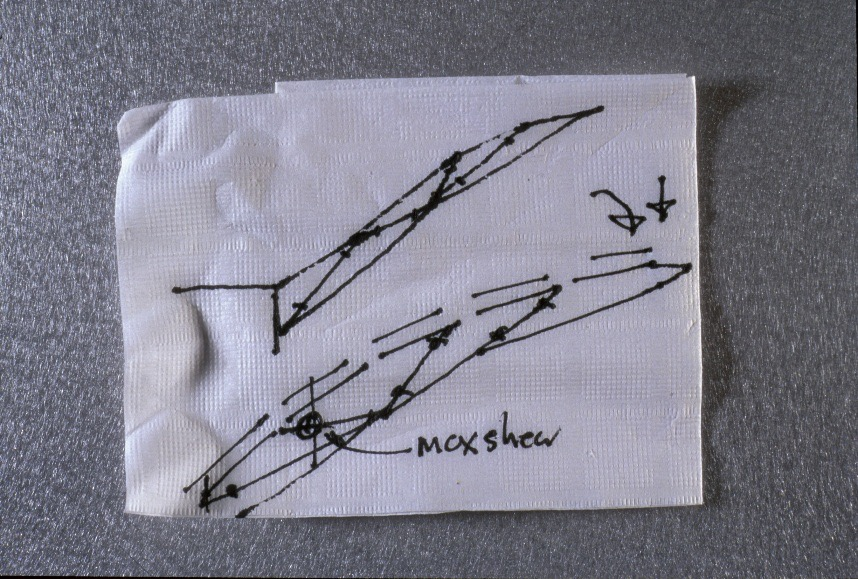 max shear